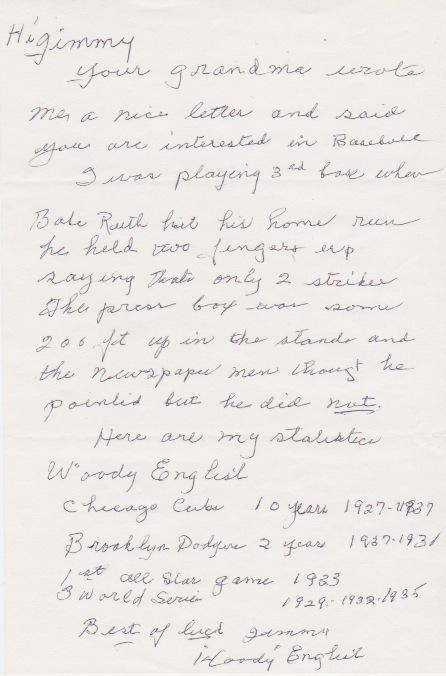 Hi Jimmy
Your grandma wrote
me a nice letter and said
you are interested in Baseball
I was playing 3rd base when
Babe Ruth hit his home run
he held two fingers up
saying thats only 2 strikes
The press box was some
200 ft up in the stands and
the newspaper men thought he
pointed but he did not.
Here are my statistics
Woody English
Chicago Cubs 10 years 1927-1937
Brooklyn Dodgers 2 years 1937-1931
1st all Star game 1933
3 World Series 1929-1932-1935
Best of luck Jimmy
"Woody" English